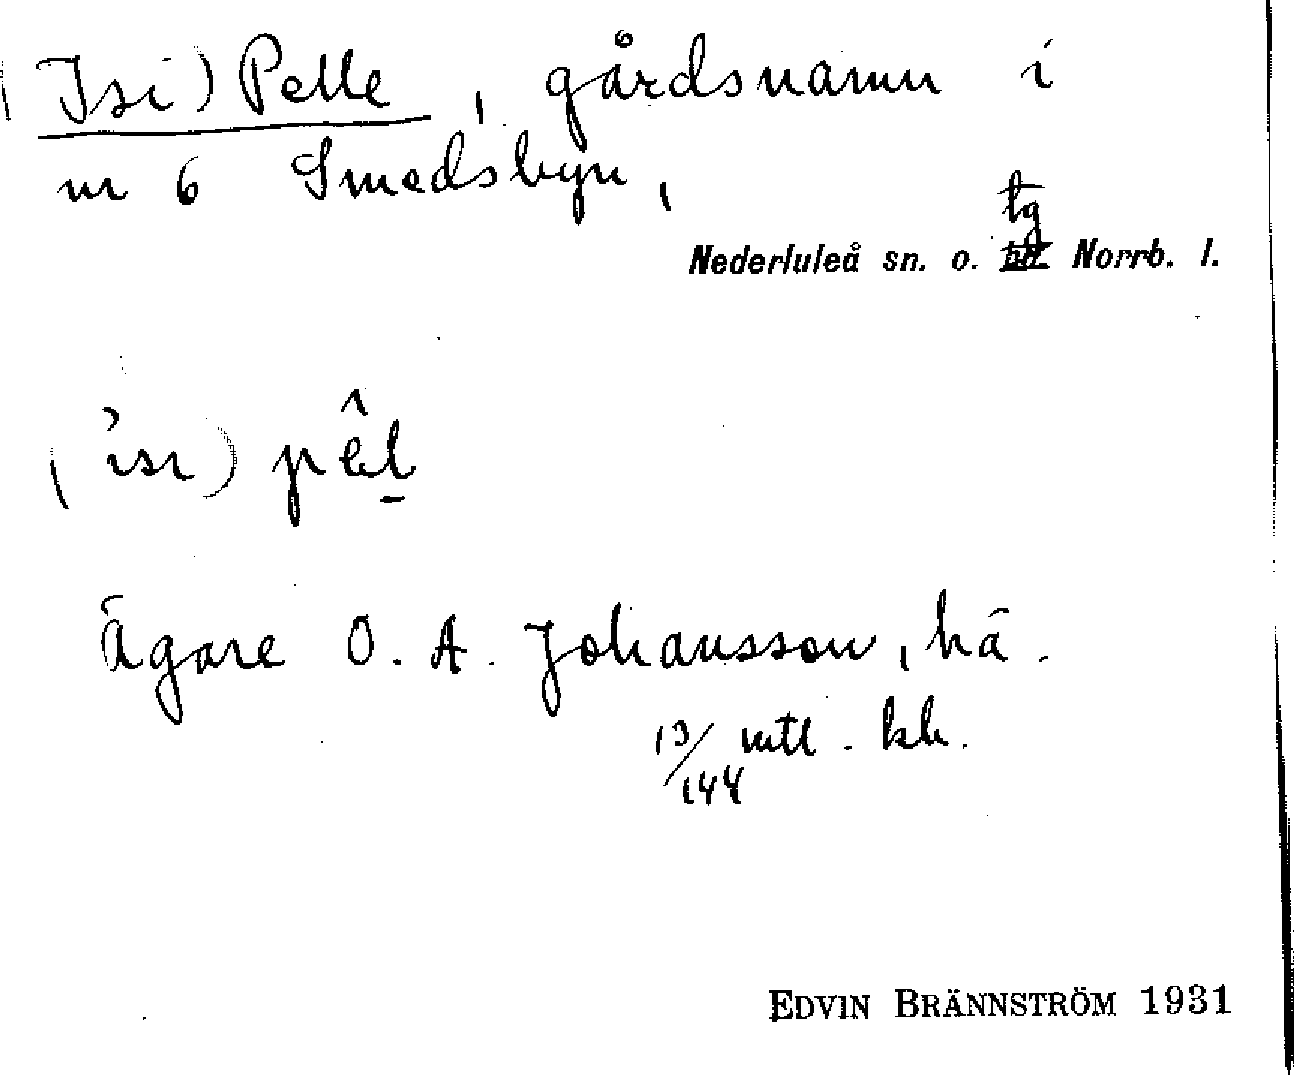 (Isi) Pelle, gårdsnamn i
nr 6 Smedsbyn,
tg
Nederluleå sn. o. Norrb. l.
(ɩ̀sɩ) pêl̠
Ägare O. A. Johansson, hä.
13/144 mtl. kh.
EDVIN BRÄNNSTRÖM 1931